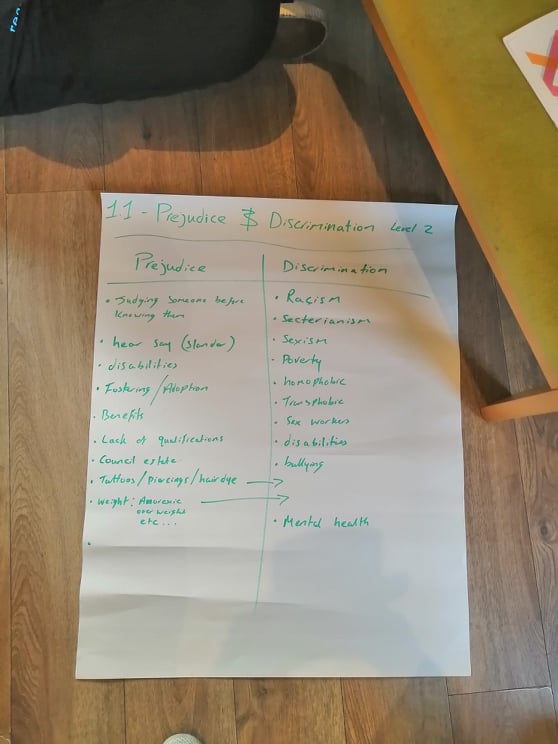 1.1 - Prejudice & Discrimination Level 2
Prejudice
• Judging someone before
knowing them
• hear say (slander)
• disabilities
• Fostering / Adoption
• Benefits
• Lack of qualifications
• Council estate
• Tattoos / piercings / hair dye →
• weight: Anorexic →
over weight
etc...
Discrimination
• Racism
• Secterianism
• Sexism
• Poverty
• homophobic
• Transphobic
• Sex workers
• disabilities
• bullying
• Mental health